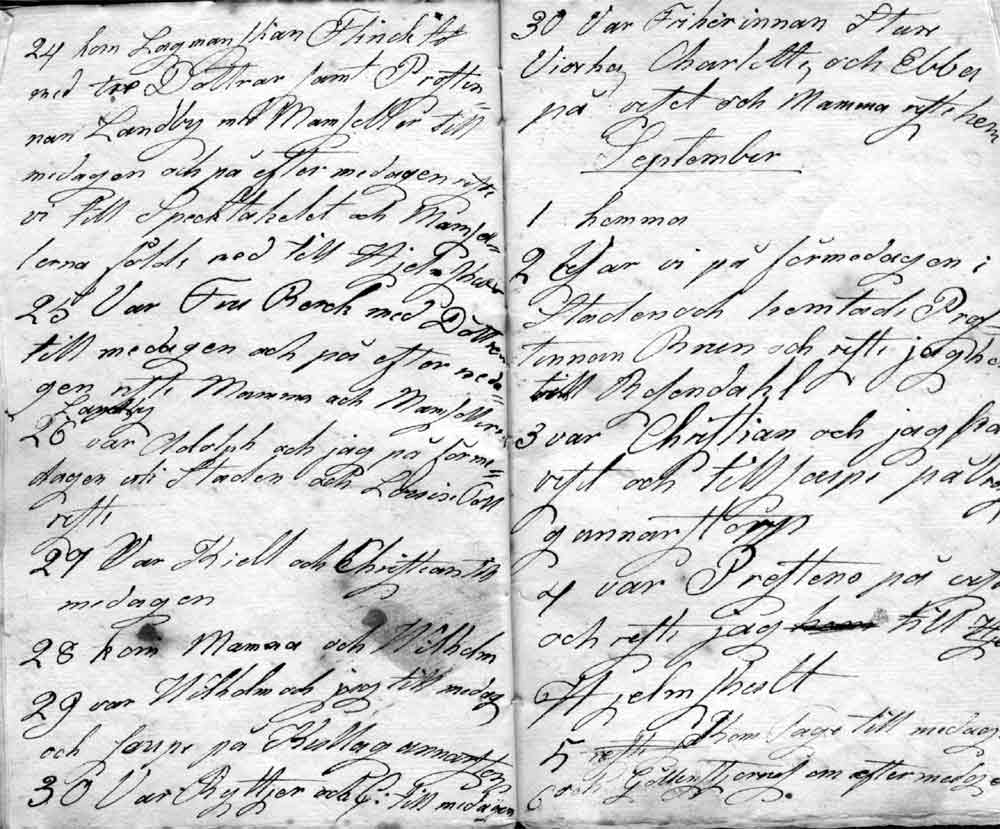 24 kom Lagmanskan Flinck
med tre Döttrar samt Prostin=
nan Landby med Mamseller till
medagen och på efter medagen reste
vi till Specktaklet och Mamsel=
lerna földe med till
25 Var Fru Berck med Döttrar
till medagen och på efter meda=
gen reste Mamma och Mamseller
Landby
26 var Adolph och jag på förme=
dagen i Staden och Lovisa
reste
27 Var Kiell och Christian till
medagen
28 kom Mamma och Wilhelm
29 var Wilhelm och jag till medag
och soupe på Kullagannarstorp
30 Var Ryttjer och till medagen
30 Var Friherinnan Sture
Charlotte och Ebba
på visit och Mamma reste hem
September
1 hemma
2 Var vi på förmedagen i
Staden och hemtade Pros=
tinnan Brun och reste jag
till Rosendahl
3 var Christian och jag på
visit och till soupe på
gunnarstorp
4 var Prestens på visit
och reste jag till
Hjelmshult
5 kom till medag
och om efter medag